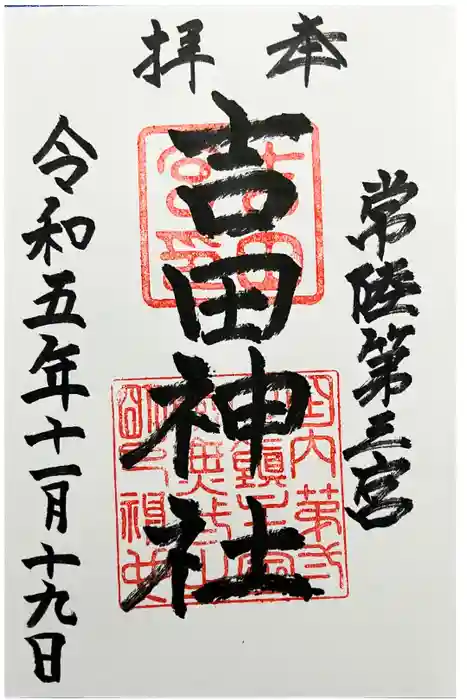 奉拝
常陸第三宮
吉田神社
令和五年十一月十九日